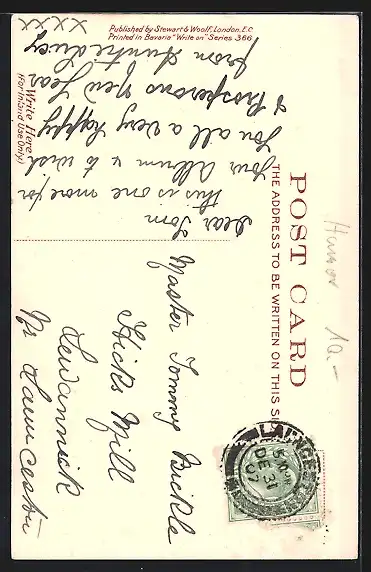 POST CARD
THE ADDRESS TO BE WRITTEN ON THIS SI
Write Here
(For Inland Use Only)
Published by Stewart & Woolf, London, E.C.
Printed in Bavaria "Write on" Series 366
Dear Tom
this is one more for
your Album & to wish
you all a very happy
& Prosperous New Year
from Auntie Lucy
x x x x
Master Tommy Bickle
Hicks Mill
Lewannick
Nr Launceston
LAUNCES
DE 31
07
Humor 10.-